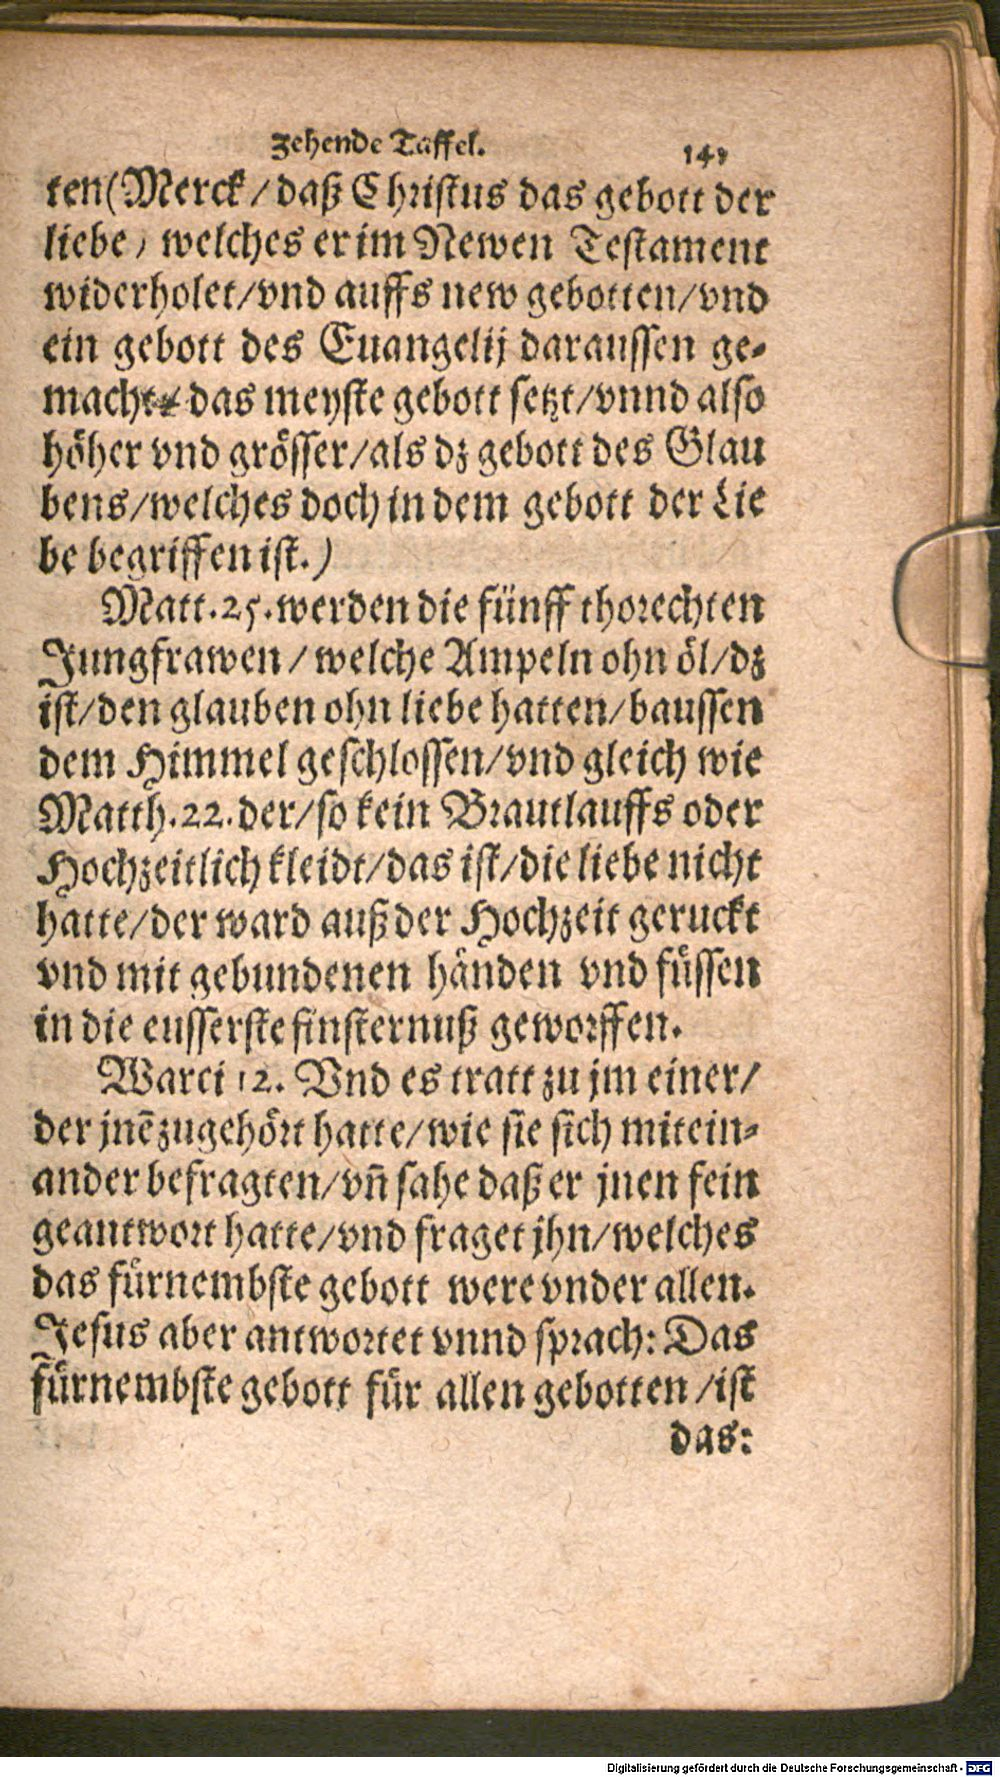 Zehende Taffel. 141
ten (Merck / daß Christus das gebott der
liebe / welches er im Newen Testament
widerholet / vnd auffs new gebotten / vnd
ein gebott des Euangelij daraussen ge-
macht / das meyste gebott setzt / vnnd also
höher vnd grösser / als dz gebott des Glau
bens / welches doch in dem gebott der Lie
be begriffen ist.)
Matt. 25. werden die fünff thorechten
Jungfrawen / welche Ampeln ohn öl / dz
ist / den glauben ohn liebe hatten / baussen
dem Himmel geschlossen / vnd gleich wie
Matth. 22. der / so kein Brautlauffs oder
Hochzeitlich kleidt / das ist / die liebe nicht
hatte / der ward auß der Hochzeit geruckt
vnd mit gebundenen händen vnd füssen
in die eusserste finsternuß geworffen.
Warci 12. Vnd es tratt zu jm einer /
der jnē zugehört hatte / wie sie sich mitein-
ander befragten / vñ sahe daß er jnen fein
geantwort hatte / vnd fraget jhn / welches
das fürnembste gebott were vnder allen.
Jesus aber antwortet vnnd sprach: Das
fürnembste gebott für allen gebotten / ist
das:
Digitalisierung gefördert durch die Deutsche Forschungsgemeinschaft - DFG